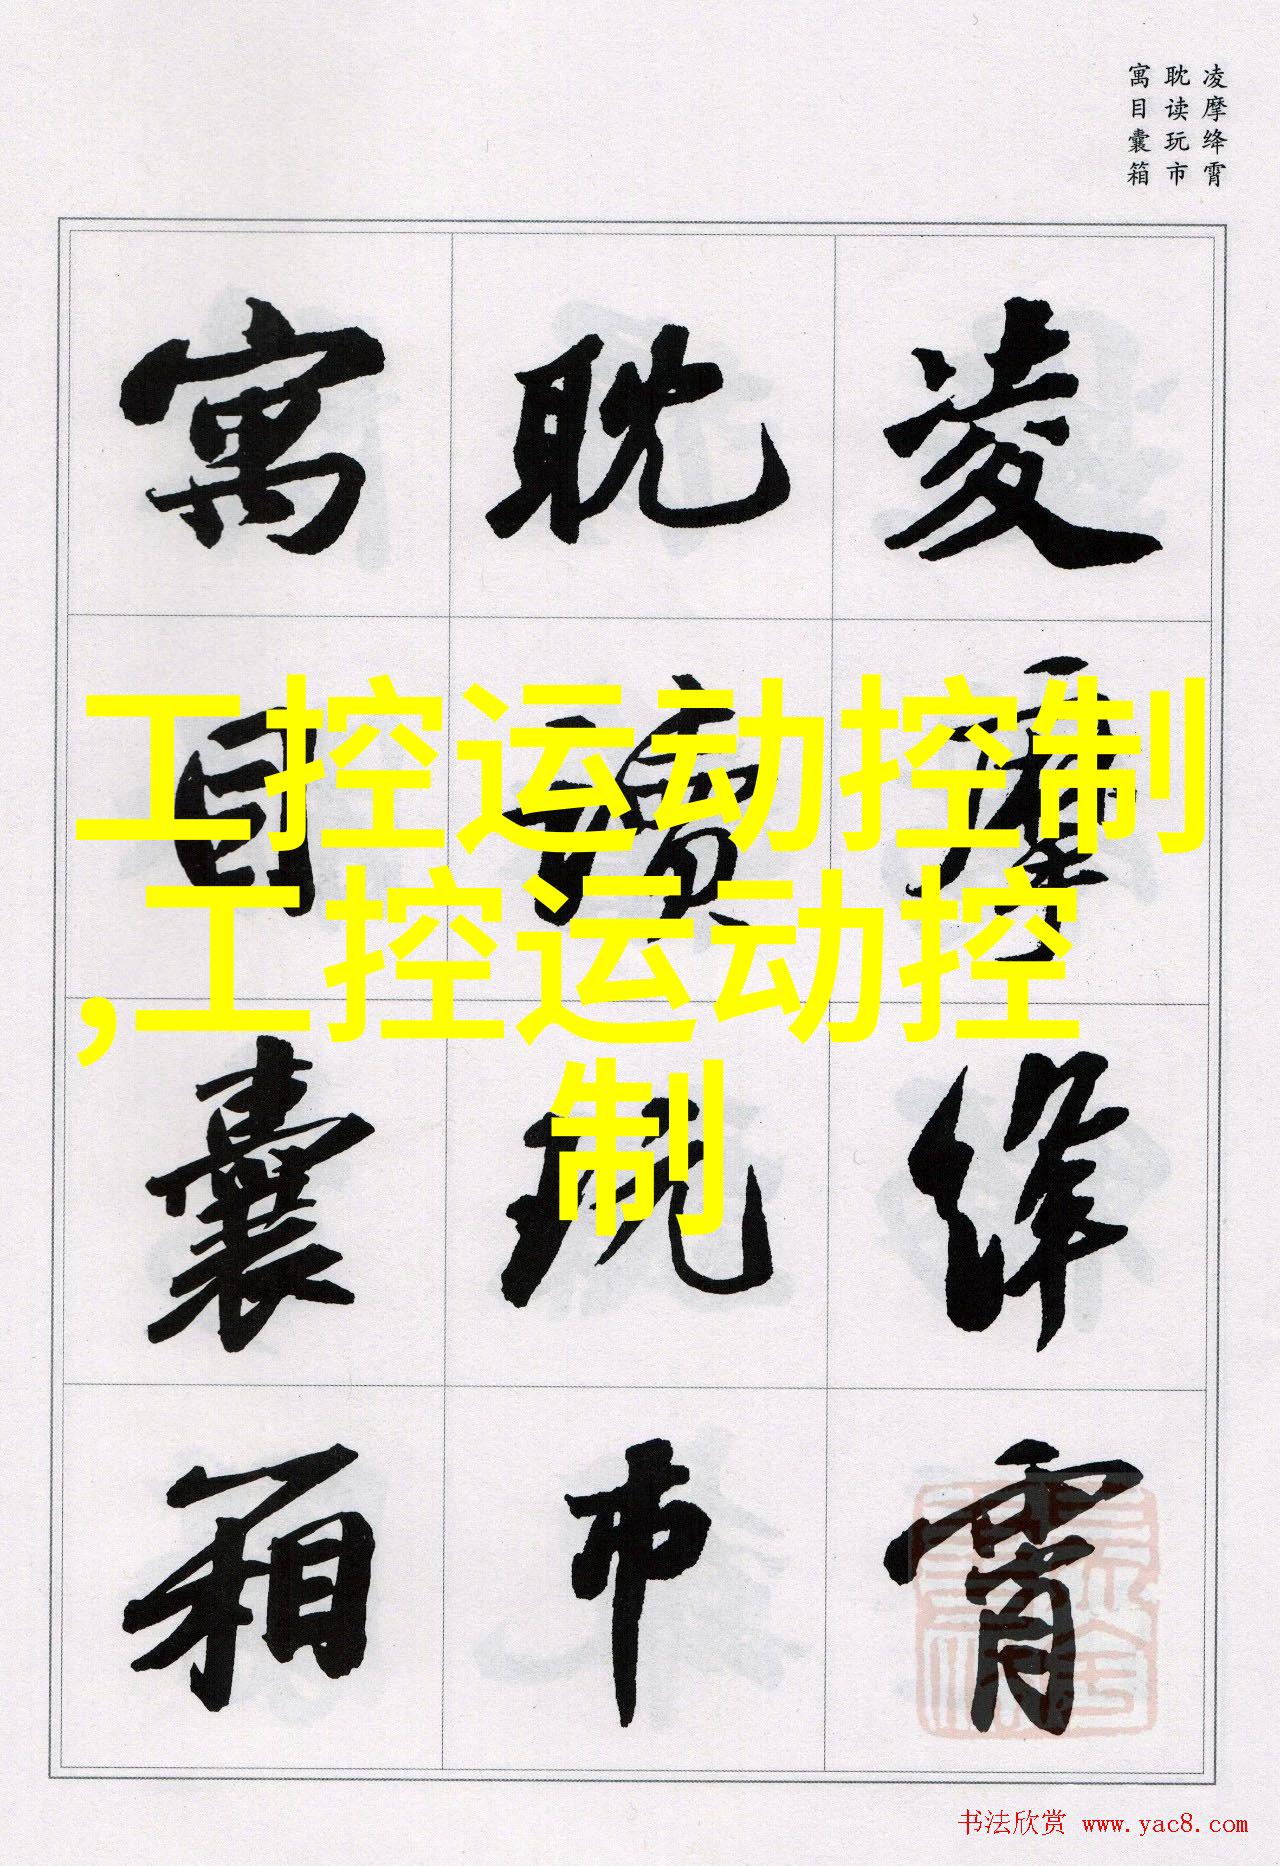 凌摩绛霄
耽读玩市
寓目囊箱
凌摩绛霄
耽讀玩市
寓目囊箱
工控运动控制
,工控运动控
制
书法欣赏 www.yac8.com